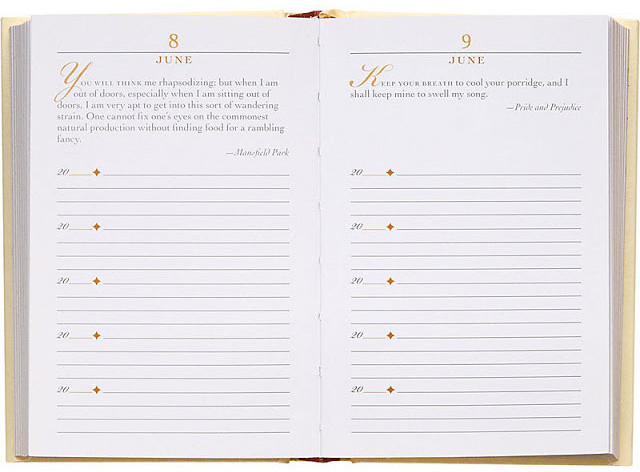 8
JUNE
YOU WILL THINK me rhapsodizing; but when I am
out of doors, especially when I am sitting out of
doors, I am very apt to get into this sort of wandering
strain. One cannot fix one's eyes on the commonest
natural production without finding food for a rambling
fancy.
—Mansfield Park
20
20
20
20
20
9
JUNE
KEEP YOUR BREATH to cool your porridge, and I
shall keep mine to swell my song.
—Pride and Prejudice
20
20
20
20
20